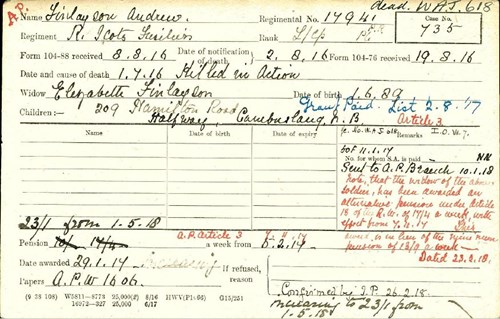 A.P.
dead. W.A.S. 618
Name Finlayson Andrew.
Regimental No. 17941
Case No. 735
Regiment R. Scots Fusiliers
Rank L/Cp
Form 104-88 received 8.8.16
Date of notification of death 2.8.16
Form 104-76 received 19.8.16
Date and cause of death 1.7.16 Killed in Action
Widow Elizabeth Finlayson
1.6.89
Grant Paid. List 2.8.17
Children:— 209 Hamilton Road
Halfway, Cambuslang, N.B.
Article 3
Name Date of birth Date of expiry
Remarks I.O.W.
SOF 11.1.17
No. for whom S.A. is paid - NK
Sent to A.P. Branch 10.1.18
note, that the widow of the above
soldier, has been awarded an
alternative pension under Article
18 of the R.W. of 17/4 a week, with
effect from 7.11.17 This
award is in lieu of the
pension of 15/9 a week—
Dated 23.2.18.
23/1 from 1-5-18
A.P. Article 3
Pension 10/- 17/4
a week from 5.2.17
Date awarded 29.1.17
increasing
If refused, reason
Papers A.P.W 1606.
Confirmed by I.P. 26.2.18.
increasing to 23/1 from
1-5-18
(9 28 108) W5811—8773 25,000(2) 8/16 HWV(P1696) G15/251
14973—327 25,000 6/17